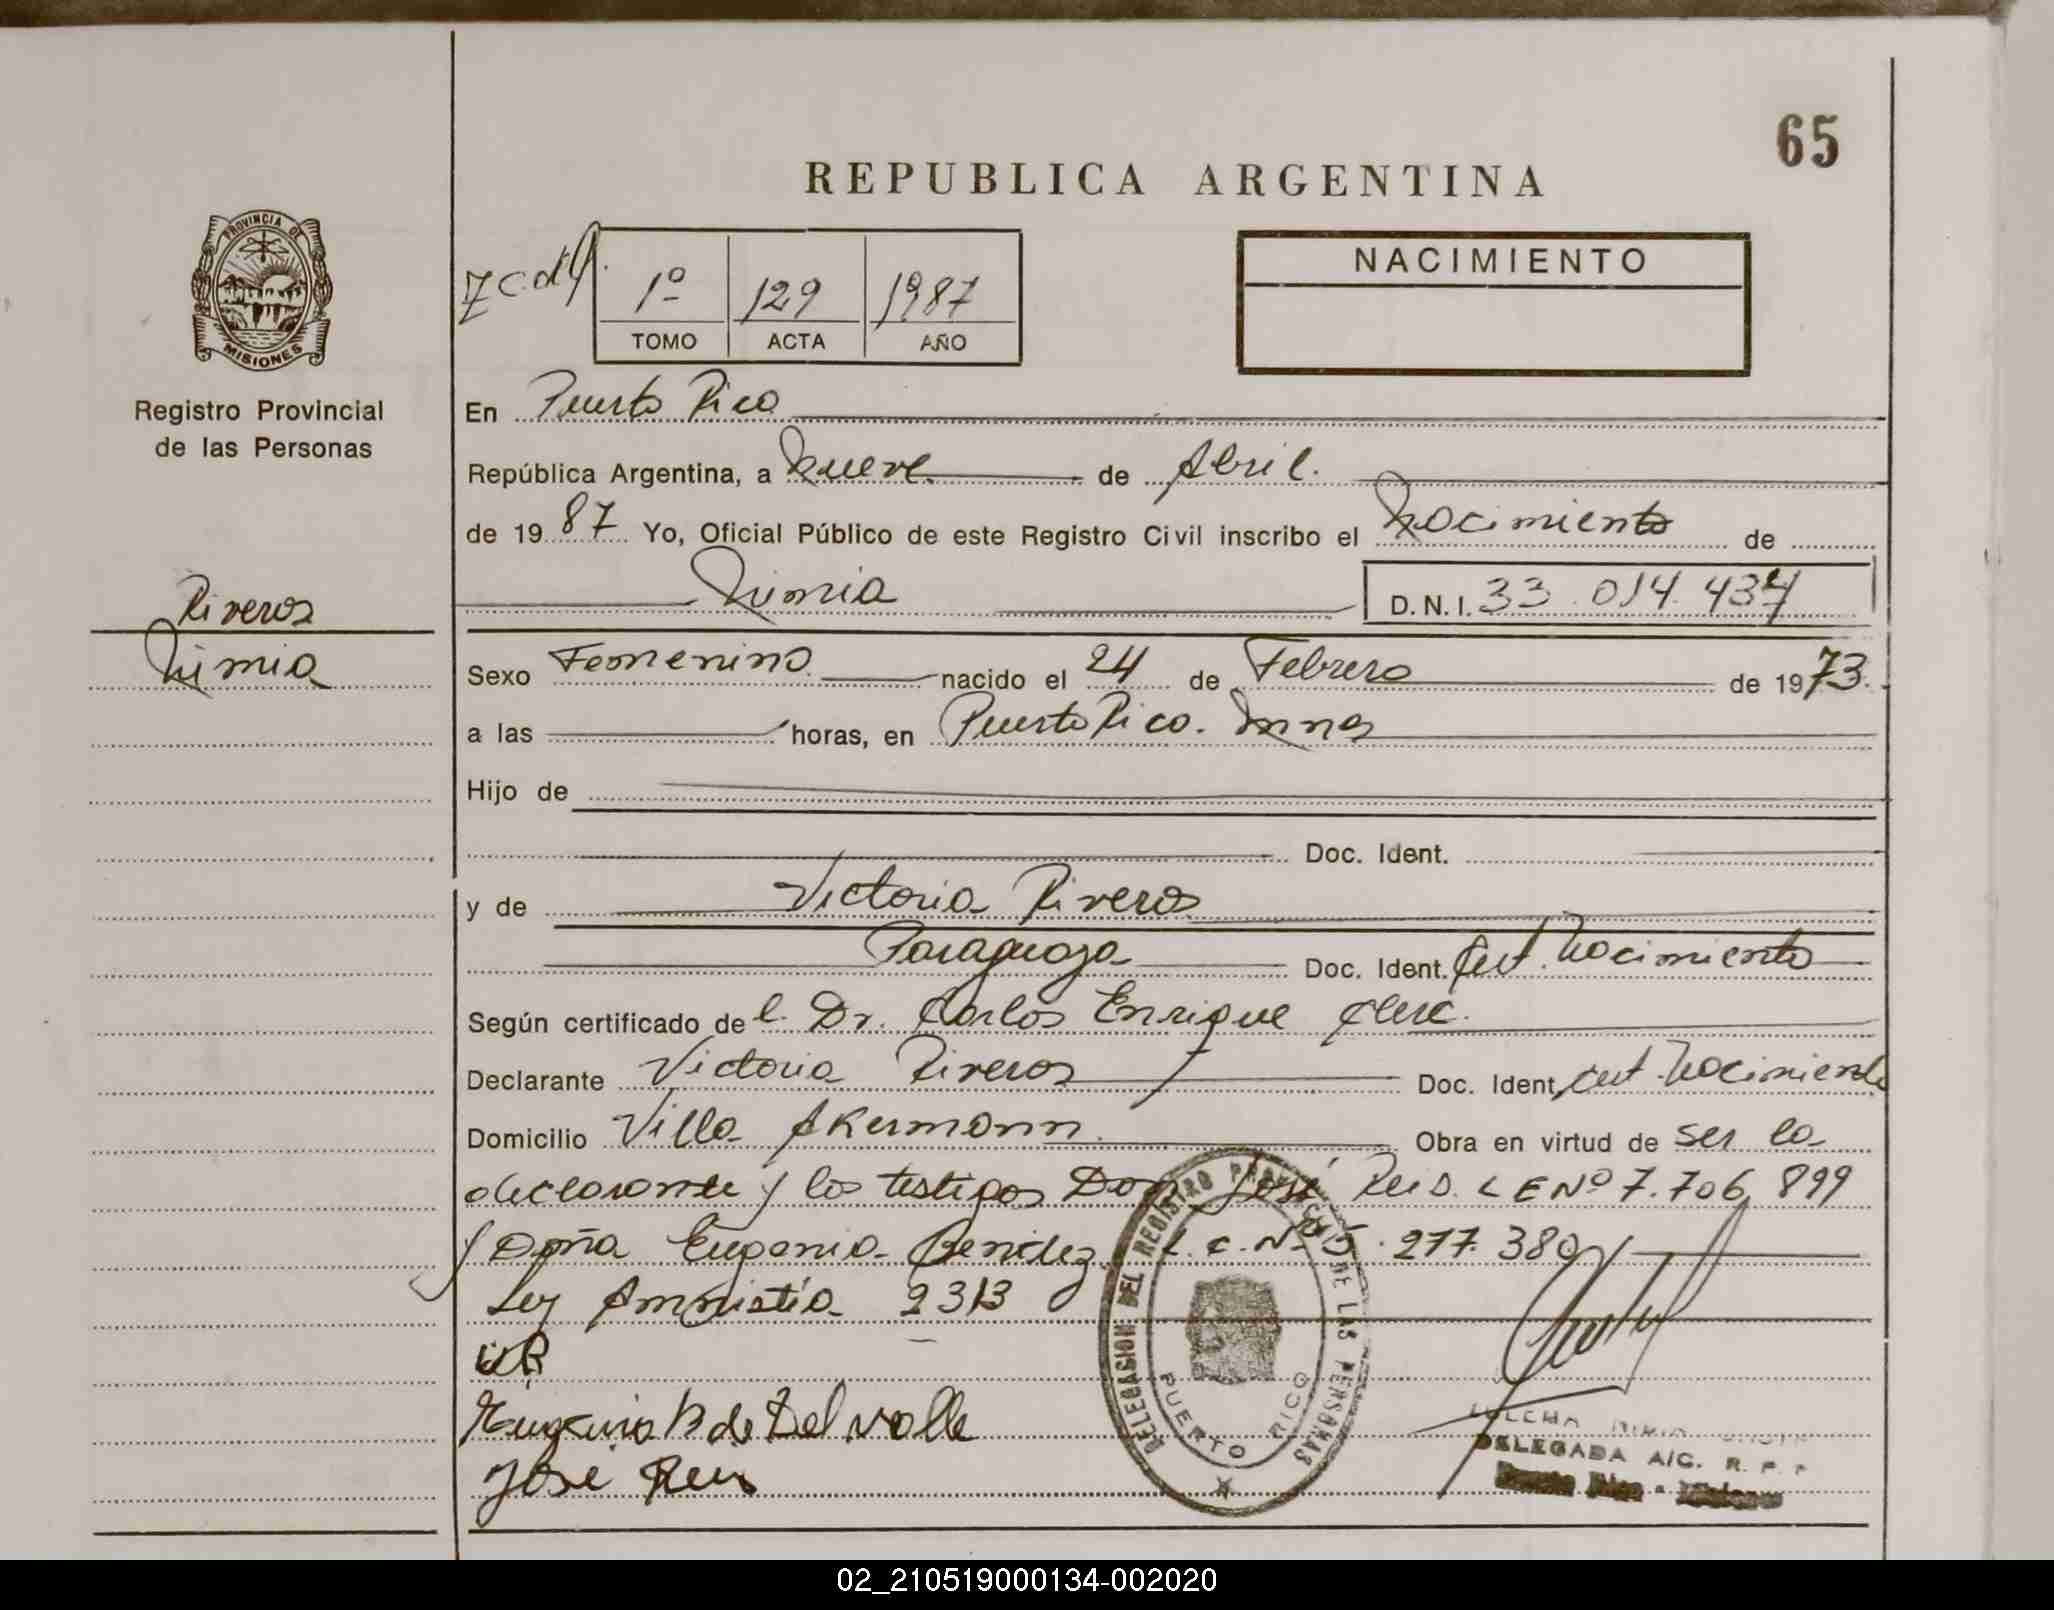 65
REPUBLICA ARGENTINA
PROVINCIA DE
MISIONES
Registro Provincial
de las Personas
1º 129 1987
TOMO ACTA AÑO
NACIMIENTO
En Puerto Rico
República Argentina, a Nueve de Abril.
de 1987 Yo, Oficial Público de este Registro Civil inscribo el Nacimiento de
Nimia D.N.I. 33.014.437
Riveros
Nimia
Sexo Femenino. nacido el 24 de Febrero de 1973.
a las horas, en Puerto Rico. Mnes
Hijo de
Doc. Ident.
y de Victoria Riveros
Paraguaya Doc. Ident. Cert. Nacimiento
Según certificado de l. Dr. Carlos Enrique Clerc.
Declarante Victoria Riveros Doc. Ident. Cert. Nacimiento
Domicilio Villa Akermann. Obra en virtud de ser la
declarante y los testigos Don José Reis. L E Nº 7.706.899
y Doña Eugenia Benidez. L. C. Nº 5.277.380
Ley Amnistía 2313
Eugenia B de Del valle
José Reis
DELEGACION DEL REGISTRO PROVINCIAL DE LAS PERSONAS
PUERTO RICO
DELEGADA A/C. R. P. P
Puerto Rico - Misiones
02_210519000134-002020